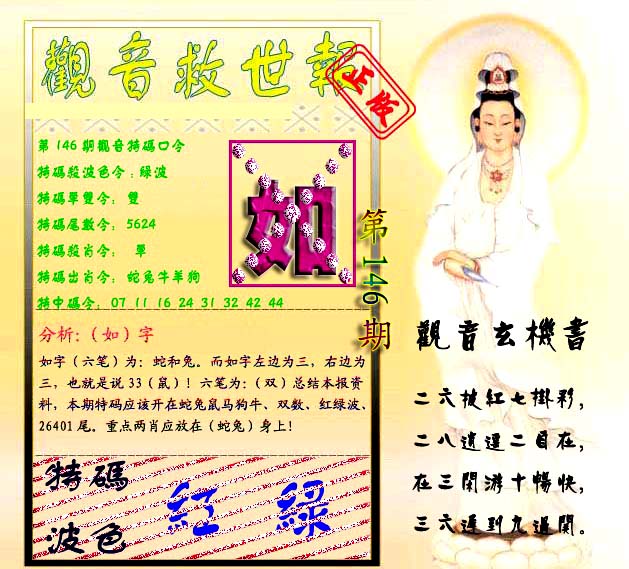 觀音救世報
正版
第146期觀音特碼口令
特碼殺波色令:綠波
特碼單雙令: 雙
特碼尾數令: 5624
特碼殺肖令: 單
特碼出肖令: 蛇兔牛羊狗
特中碼令: 07 11 16 24 31 32 42 44
如
第146期
分析:（如）字
如字（六笔）为：蛇和兔。而如字左边为三，右边为
三，也就是说 33（鼠）！六笔为：（双）总结本报资
料，本期特码应该开在蛇兔鼠马狗牛、双数、红绿波、
26401 尾。重点两肖应放在（蛇兔）身上！
特碼
波色
紅 綠
觀音玄機書
二六披紅七掛彩,
二八逍遥二自在,
在三閑游十暢快,
三六遲到九過關。